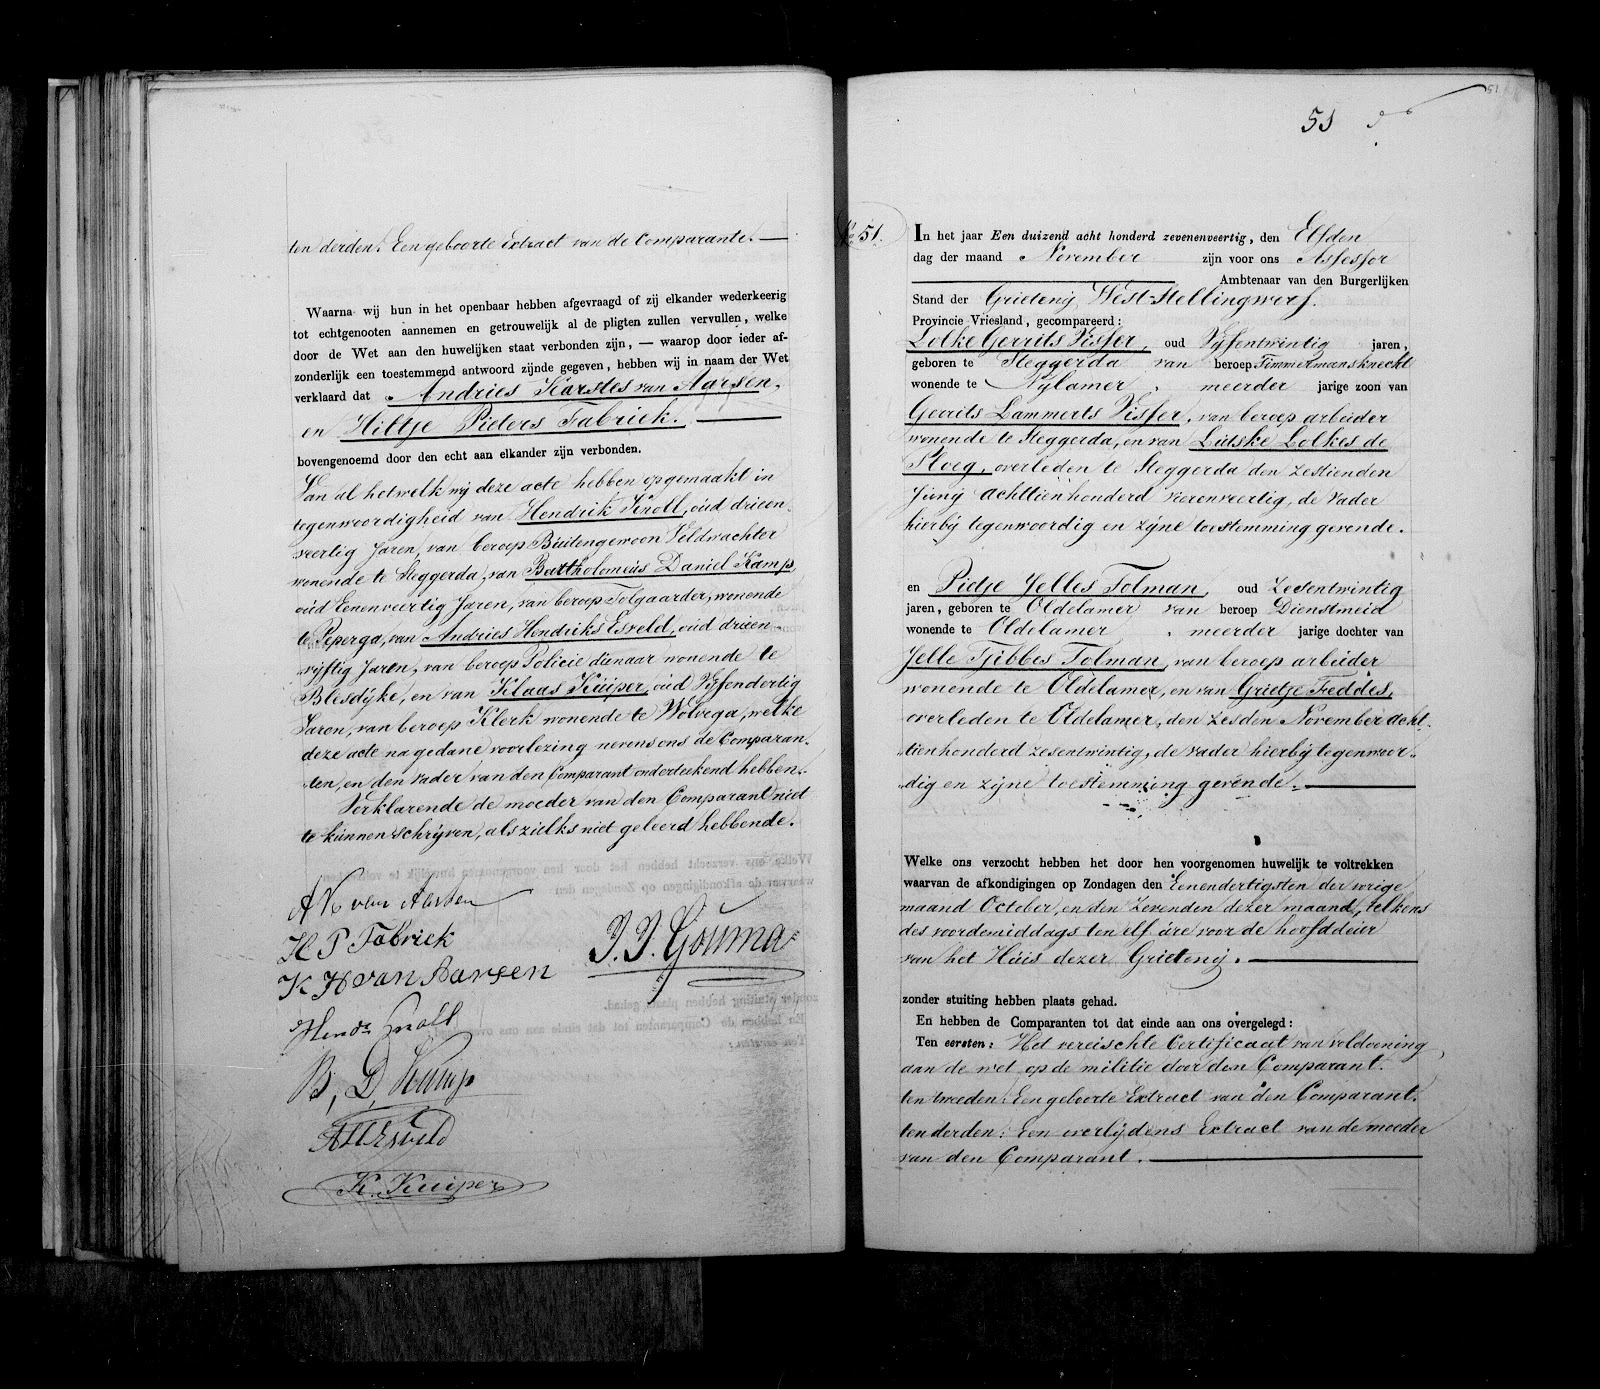 ten derden: Een geboorte Extract van de Comparante.
Waarna wij hun in het openbaar hebben afgevraagd of zij elkander wederkeerig
tot echtgenooten aannemen en getrouwelijk al de pligten zullen vervullen, welke
door de Wet aan den huwelijken staat verbonden zijn, — waarop door ieder af-
zonderlijk een toestemmend antwoord zijnde gegeven, hebben wij in naam der Wet
verklaard dat Andries Karstes van Aarsen,
en Hiltje Pieters Fabriek.
bovengenoemd door den echt aan elkander zijn verbonden.
Van al hetwelk wij deze acte hebben opgemaakt in
tegenwoordigheid van Hendrik Knoll, oud drieen-
veertig Jaren, van beroep Buitengewoon Veldwachter
wonende te Steggerda, van Bartholomeus Daniel Kamp,
oud Eenenveertig Jaren, van beroep Tolgaarder, wonende
te Peperga, van Andries Hendriks Esveld, oud drieen-
vyftig Jaren, van beroep Policie dienaar wonende te
Blesdyke, en van Klaas Kuiper, oud Vyfendertig
Jaren, van beroep Klerk wonende te Wolvega, welke
deze acte na gedane voorlezing nevens ons de Comparan-
ten, en den vader van den Comparant onderteekend hebben.
Verklarende de moeder van den Comparant niet
te kunnen schryven, als zulks niet geleerd hebbende.
A K van Aarsen
H P Fabriek
J. J. Gouma
K H van Aarsen
Hendk Knoll
B, D, Kamp
A H Esveld
K. Kuiper
51
51
No 51.
In het jaar Een duizend acht honderd zevenenveertig, den Elfden
dag der maand November zijn voor ons Assessor
Ambtenaar van den Burgerlijken
Stand der Grieteny West-Stellingwerf.
Provincie Vriesland, gecompareerd:
Lolke Gerrits Visser, oud Vyfentwintig jaren,
geboren te Steggerda van beroep Timmermansknecht
wonende te Nylamer, meerder jarige zoon van
Gerrits Lammerts Visser, van beroep arbeider
wonende te Steggerda, en van Lutske Lolkes de
Ploeg, overleden te Steggerda den zestienden
Juny achttienhonderd vierenveertig, de vader
hierby tegenwoordig en zyne toestemming gevende.
en Pietje Jelles Tolman, oud Zesentwintig
jaren, geboren te Oldelamer van beroep Dienstmeid
wonende te Oldelamer, meerder jarige dochter van
Jelle Tjibbes Tolman, van beroep arbeider
wonende te Oldelamer, en van Grietje Feddes,
overleden te Oldelamer, den zesden November acht-
tienhonderd zesentwintig, de vader hierby tegenwoor-
dig en zyne toestemming gevende.
Welke ons verzocht hebben het door hen voorgenomen huwelijk te voltrekken
waarvan de afkondigingen op Zondagen den Eenendertigsten der vorige
maand October, en den Zevenden dezer maand, telkens
des voordemiddags ten elf ure voor de hoofddeur
van het Huis dezer Grieteny.
zonder stuiting hebben plaats gehad.
En hebben de Comparanten tot dat einde aan ons overgelegd:
Ten eersten: Het vereischte Certificaat van voldoening
aan de wet op de militie door den Comparant.
ten tweeden: Een geboorte Extract van den Comparant.
ten derden: Een overlydens Extract van de moeder
van den Comparant.